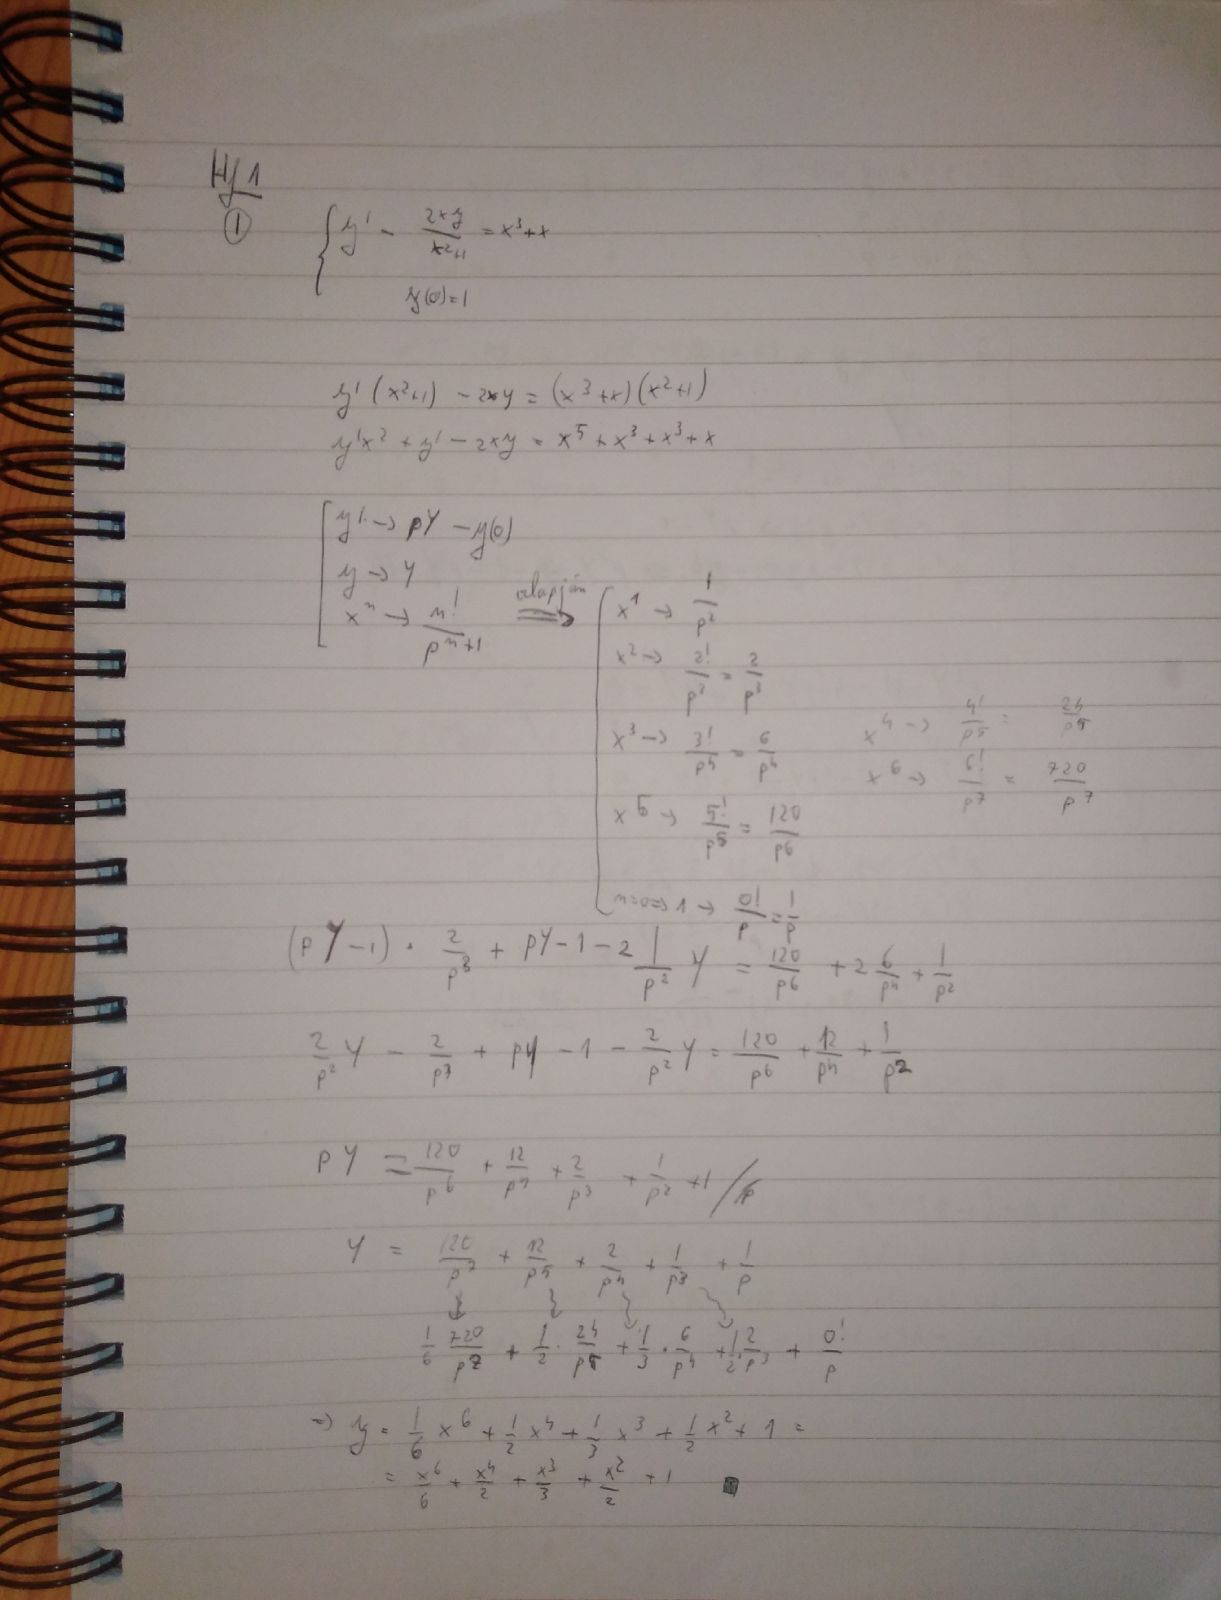 H/1
①
y' - 2xy/(x²+1) = x³+x
y(0)=1
y'(x²+1) - 2xy = (x³+x)(x²+1)
y'x² + y' - 2xy = x⁵ + x³ + x³ + x
y' → pY - y(0)
y → Y
xⁿ → n!/pⁿ⁺¹ alapján ⇒
x¹ → 1/p²
x² → 2!/p³ = 2/p³
x³ → 3!/p⁴ = 6/p⁴
x⁴ → 4!/p⁵ = 24/p⁵
x⁶ → 6!/p⁷ = 720/p⁷
x⁵ → 5!/p⁶ = 120/p⁶
n=0 ⇒ 1 → 0!/p = 1/p
(pY-1) · 2/p³ + pY - 1 - 2 1/p² Y = 120/p⁶ + 2 6/p⁴ + 1/p²
2/p² Y - 2/p³ + pY - 1 - 2/p² Y = 120/p⁶ + 12/p⁴ + 1/p²
pY = 120/p⁶ + 12/p⁴ + 2/p³ + 1/p² + 1 /:p
Y = 120/p⁷ + 12/p⁵ + 2/p⁴ + 1/p³ + 1/p
1/6 720/p⁷ + 1/2 · 24/p⁵ + 1/3 · 6/p⁴ + 1/2 · 2/p³ + 0!/p
⇒ y = 1/6 x⁶ + 1/2 x⁴ + 1/3 x³ + 1/2 x² + 1 =
= x⁶/6 + x⁴/2 + x³/3 + x²/2 + 1 ■